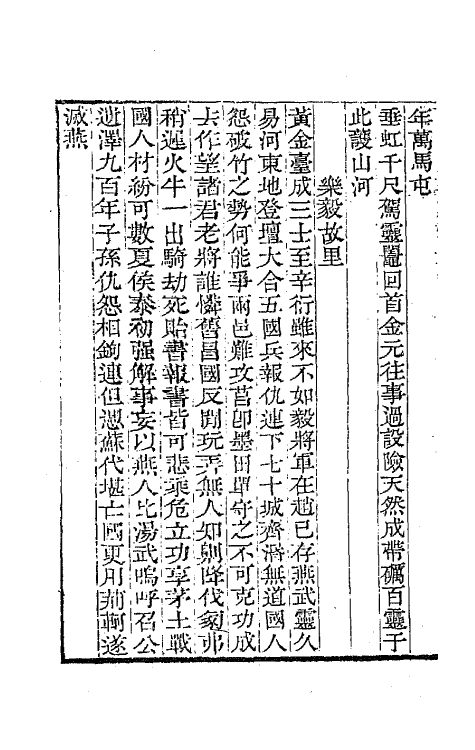 年萬馬屯
垂虹千尺駕靈鼉回首金元往事過設險天然成帶礪百靈于
此護山河
樂毅故里
黃金臺成三士至辛衍雖來不如毅將軍在趙已存燕武靈久
易河東地登壇大合五國兵報仇連下七十城齊湣無道國人
怨破竹之勢何能爭兩邑難攻莒卽墨田單守之不可克功成
去作望諸君老將誰憐舊昌國反閒玩弄無人知劓降伐冢弗
稍遲火牛一出騎劫死貽書報書皆可悲乘危立功享茅土戰
國人材紛可數夏侯泰初强解事妄以燕人比湯武嗚呼召公
遺澤九百年子孫仇怨相鉤連但慿蘇代堪亡國更用荆軻遂
滅燕